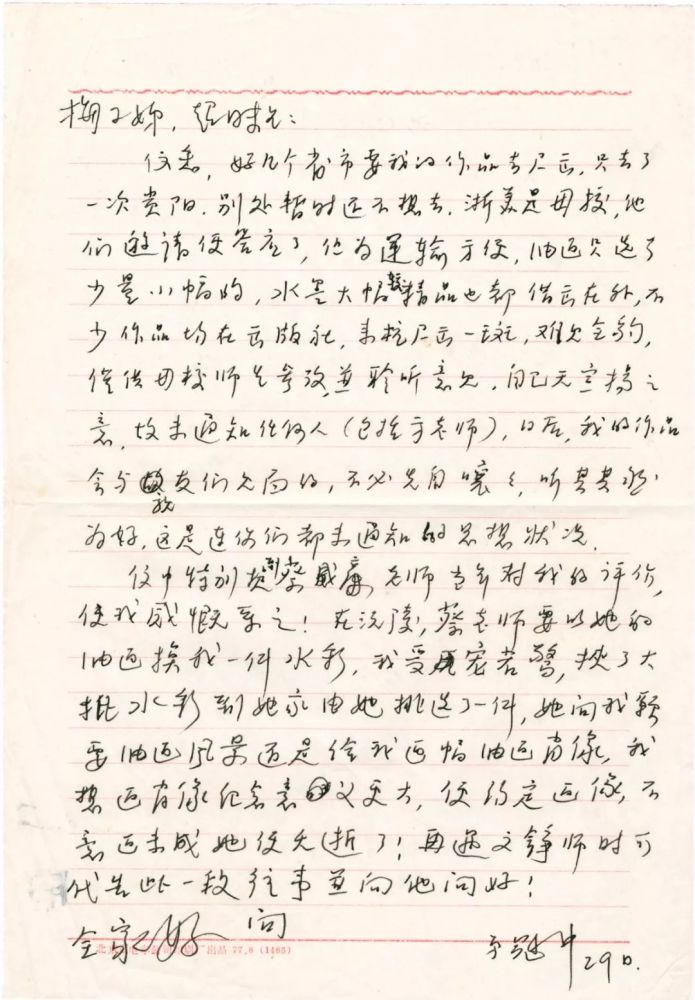 梅子姊，
信悉，好几个省市要我的作品去展出，只去了
一次贵阳，别处暂时还不想去，浙美是母校，他
们邀请便答应了，但为运输方便，油画只选了
少量小幅的，水墨大幅较精品也都借出在外，不
少作品均在出版社，未能展出一斑，难见全豹，
仅供母校师生参考，并聆听意见，自己无宣扬之
意，故未通知任何人（包括方老师），日后，我的作品
会与我友们见面的，不必先自嚷嚷，听其其然
为好，这是连你们都未通知的思想状况。
信中特别提到蔡威廉老师当年对我的评价，
使我感慨系之！在沅陵，蔡老师要以她的
油画换我一件水彩，我受宠若惊，挟了大
批水彩到她家由她挑选了一件，她问我愿
要油画风景还是给我画幅油画肖像，我
想画肖像纪念意义更大，便约定画像，不
意画未成她便先逝了！再遇文铮师时可
代告此一段往事并向他问好！
问
全家好
冠中 29日.
出品 77.8 (1465)